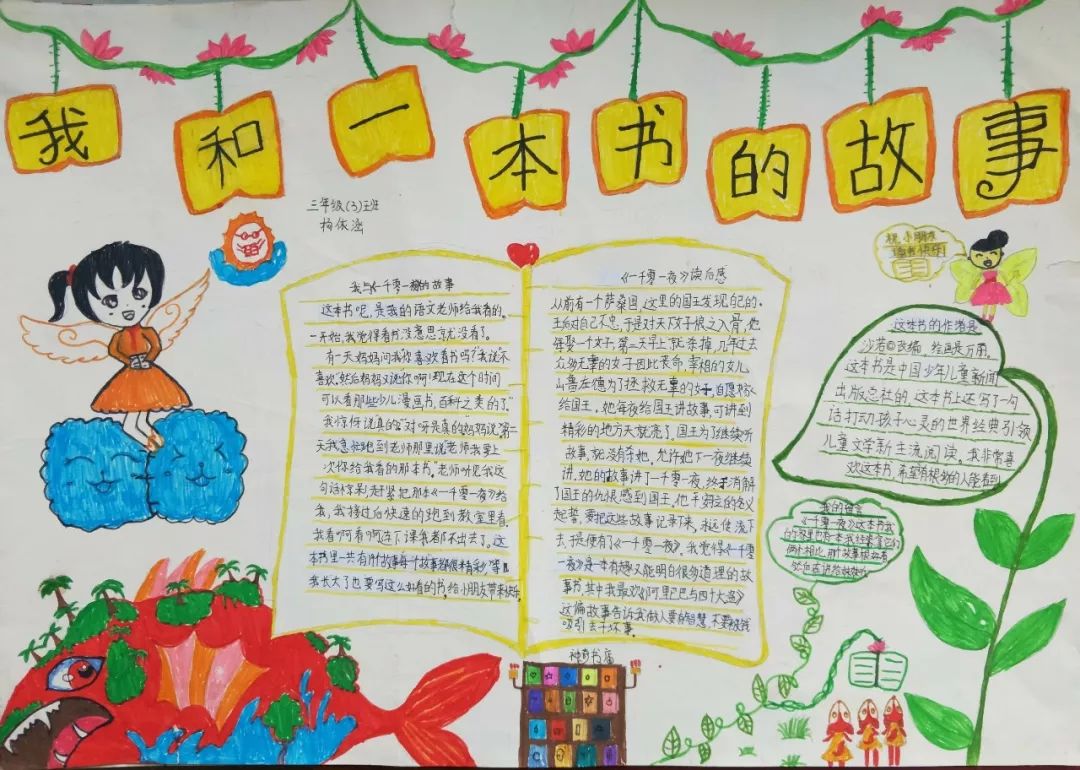 我和一本书的故事
三年级(3)班
杨依涵
我与《一千零一夜》的故事
这本书呢,是我的语文老师给我看的。
一开始,我觉得看书没意思就没看了。
有一天妈妈问我你喜欢看书吗?我说不
喜欢"然后妈妈又说你啊!现在这个时间
可以看那些少儿漫画书,百科之类的了。"
我惊讶说真的"对呀是真的"妈妈说。第二
天我急忙跑到老师那里说老师我要上
次你给我看的那本书。老师听见我这
句话惊呆!赶紧把那本《一千零一夜》给
我,我接过后快速的跑到教室里看
我看啊看啊连下课我都不出去了。这
本书里一共有 故事每个故事都很精彩,等
我长大了也要写这么好看的书,给小朋友带来快乐。
《一千零一夜》读后感
从前有一个萨桑国,这里的国王发现自己的
王后对自己不忠,于是对天下女子恨之入骨,他
每娶一个女子,第二天早上就杀掉,几年过去
众多无辜的女子因此丧命,宰相的女儿
山鲁佐德为了拯救无辜的女子,自愿嫁
给国王。她每夜给国王讲故事,可讲到
精彩的地方天就亮了。国王为了继续听
故事,就没有杀她,允许她下一夜继续
讲。她的故事讲了一千零一夜,终于消解
了国王的仇恨感到国王。他平安 的名义
起誓,要把这些故事记录下来,永远传流下
去,于是便有了《一千零一夜》。我觉得《一千零
一夜》是一本有趣又能明白很多道理的故
事书,其中我最欢《阿里巴巴与四十大盗》
这偏故事告诉我做人要有智慧,不要被钱
吸引去干坏事。
神奇书店
祝小朋友
读书快乐!
这本书的作者是
改编,绘画是万雨。
这本书是中国少年儿童新闻
出版总社的,这本书上还写了一句
话打动孩子心灵的世界经典引领
儿童文学新主流阅读。我非常喜
欢这本书,希望有很多的人能看到
我的留言
《一千零夜》这本书我
的 里也有本我经常拿它们
俩个相比,那个故事 好看
然后在讲给妹妹听